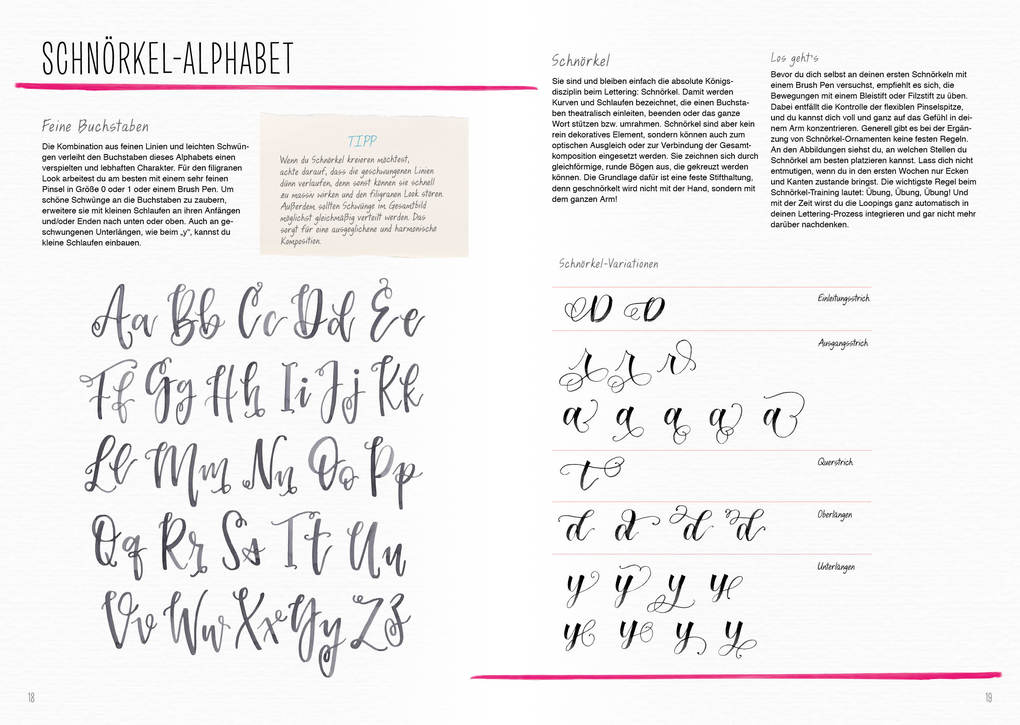 SCHNÖRKEL-ALPHABET
Feine Buchstaben
Die Kombination aus feinen Linien und leichten Schwün-
gen verleiht den Buchstaben dieses Alphabets einen
verspielten und lebhaften Charakter. Für den filigranen
Look arbeitest du am besten mit einem sehr feinen
Pinsel in Größe 0 oder 1 oder einem Brush Pen. Um
schöne Schwünge an die Buchstaben zu zaubern,
erweitere sie mit kleinen Schlaufen an ihren Anfängen
und/oder Enden nach unten oder oben. Auch an ge-
schwungenen Unterlängen, wie beim „y“, kannst du
kleine Schlaufen einbauen.
TIPP
Wenn du Schnörkel kreieren möchtest,
achte darauf, dass die geschwungenen Linien
dünn verlaufen, denn sonst können sie schnell
zu massiv wirken und den filigranen Look stören.
Außerdem sollten Schwünge im Gesamtbild
möglichst gleichmäßig verteilt werden. Das
sorgt für eine ausgeglichene und harmonische
Komposition.
Aa Bb Cc Dd Ee
Ff Gg Hh Ii Jj Kk
Ll Mm Nn Oo Pp
Qq Rr Ss Tt Uu
Vv Ww Xx Yy Zz
18
Schnörkel
Sie sind und bleiben einfach die absolute Königs-
disziplin beim Lettering: Schnörkel. Damit werden
Kurven und Schlaufen bezeichnet, die einen Buchsta-
ben theatralisch einleiten, beenden oder das ganze
Wort stützen bzw. umrahmen. Schnörkel sind aber kein
rein dekoratives Element, sondern können auch zum
optischen Ausgleich oder zur Verbindung der Gesamt-
komposition eingesetzt werden. Sie zeichnen sich durch
gleichförmige, runde Bögen aus, die gekreuzt werden
können. Die Grundlage dafür ist eine feste Stifthaltung,
denn geschnörkelt wird nicht mit der Hand, sondern mit
dem ganzen Arm!
Los geht's
Bevor du dich selbst an deinen ersten Schnörkeln mit
einem Brush Pen versuchst, empfiehlt es sich, die
Bewegungen mit einem Bleistift oder Filzstift zu üben.
Dabei entfällt die Kontrolle der flexiblen Pinselspitze,
und du kannst dich voll und ganz auf das Gefühl in dei-
nem Arm konzentrieren. Generell gibt es bei der Ergän-
zung von Schnörkel-Ornamenten keine festen Regeln.
An den Abbildungen siehst du, an welchen Stellen du
Schnörkel am besten platzieren kannst. Lass dich nicht
entmutigen, wenn du in den ersten Wochen nur Ecken
und Kanten zustande bringst. Die wichtigste Regel beim
Schnörkel-Training lautet: Übung, Übung, Übung! Und
mit der Zeit wirst du die Loopings ganz automatisch in
deinen Lettering-Prozess integrieren und gar nicht mehr
darüber nachdenken.
Schnörkel-Variationen
D D
Einleitungsstrich
Ausgangsstrich
r r r
a a a a a
t
Querstrich
d d d d
Oberlängen
Unterlängen
y y y y
y y y y
19